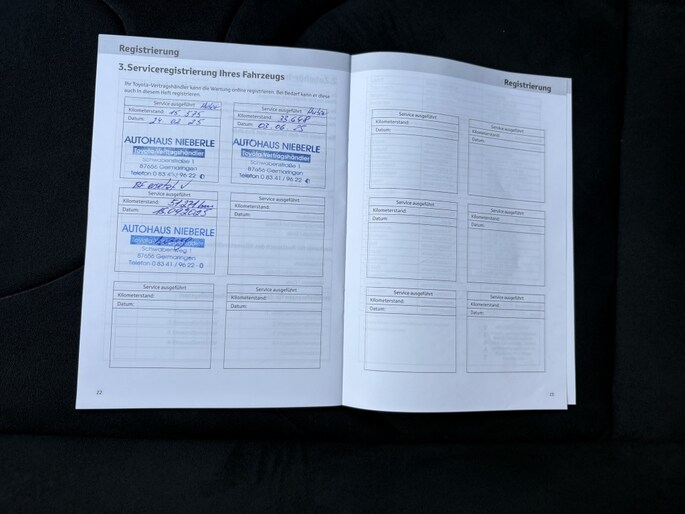 Registrierung
3.Serviceregistrierung Ihres Fahrzeugs
Ihr Toyota-Vertragshändler kann die Wartung online registrieren. Bei Bedarf kann er diese
auch in diesem Heft registrieren.
Service ausgeführt
Kilometerstand: 15 575
Datum: 24 02 25
AUTOHAUS NIEBERLE
Toyota-Vertragshändler
Schwabenstraße 1
87656 Germaringen
Telefon 0 83 41 / 96 22
Service ausgeführt
Kilometerstand: 33.648
Datum: 03. 06 25
AUTOHAUS NIEBERLE
Toyota-Vertragshändler
Schwabenstraße 1
87656 Germaringen
Telefon 0 83 41 / 96 22
Service ausgeführt
Kilometerstand:
Datum:
AUTOHAUS NIEBERLE
87656 Germaringen
Telefon 0 83 41 / 96 22 - 0
Service ausgeführt
Kilometerstand:
Datum:
Service ausgeführt
Kilometerstand:
Datum:
Service ausgeführt
Kilometerstand:
Datum:
22
Registrierung
Service ausgeführt
Kilometerstand:
Datum:
Service ausgeführt
Kilometerstand:
Datum:
Service ausgeführt
Kilometerstand:
Datum:
Service ausgeführt
Kilometerstand:
Datum:
Service ausgeführt
Kilometerstand:
Datum:
Service ausgeführt
Kilometerstand:
Datum: